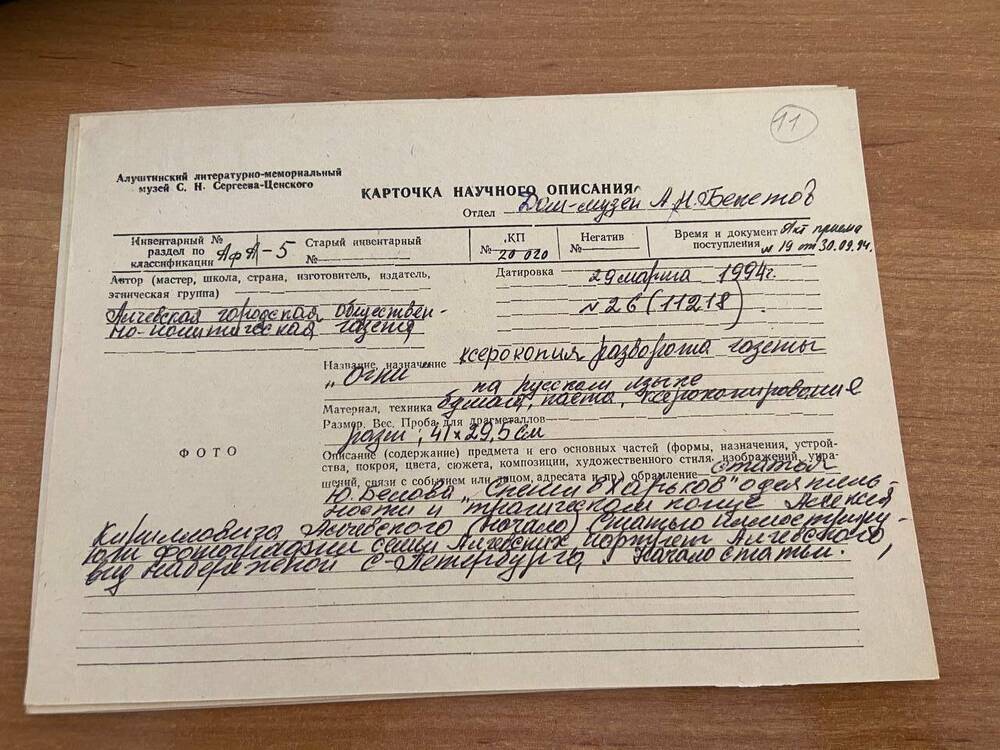 11
Алуштинский литературно-мемориальный
музей С. Н. Сергеева-Ценского
КАРТОЧКА НАУЧНОГО ОПИСАНИЯ
Отдел Дом-музей А.Н. Бекетов
Инвентарный №
раздел по
классификации АфА-5
Старый инвентарный
№
КП
№ 20 020
Негатив
№
Время и документ Акт приема
поступления № 19 от 30.09.94.
Автор (мастер, школа, страна, изготовитель, издатель,
этническая группа)
Алчевская городская обществен-
но-политическая газета
Датировка
29 марта 1994г.
№ 26 (11218)
Название, назначение ксерокопия разворота газеты
„Огни" на русском языке
Материал, техника бумага, паста, ксерокопирование
Размер. Вес. Проба для драгметаллов
розм; 41 х 29,5 см
ФОТО
Описание (содержание) предмета и его основных частей (формы, назначения, устрой-
ства, покроя, цвета, сюжета, композиции, художественного стиля, изображений, укра-
шений, связи с событием или лицом, адресата и пр.) обрамление статья
Ю. Белова „Спешил в Харьков" о деятель-
ности и трагическом конце Алексея
Кирилловича Алчевского (начало) Статью иллюстриру-
ют фотографии семьи Алчевских портрет Алчевского,
вид набережной С-Петербурга, Начало статьи.